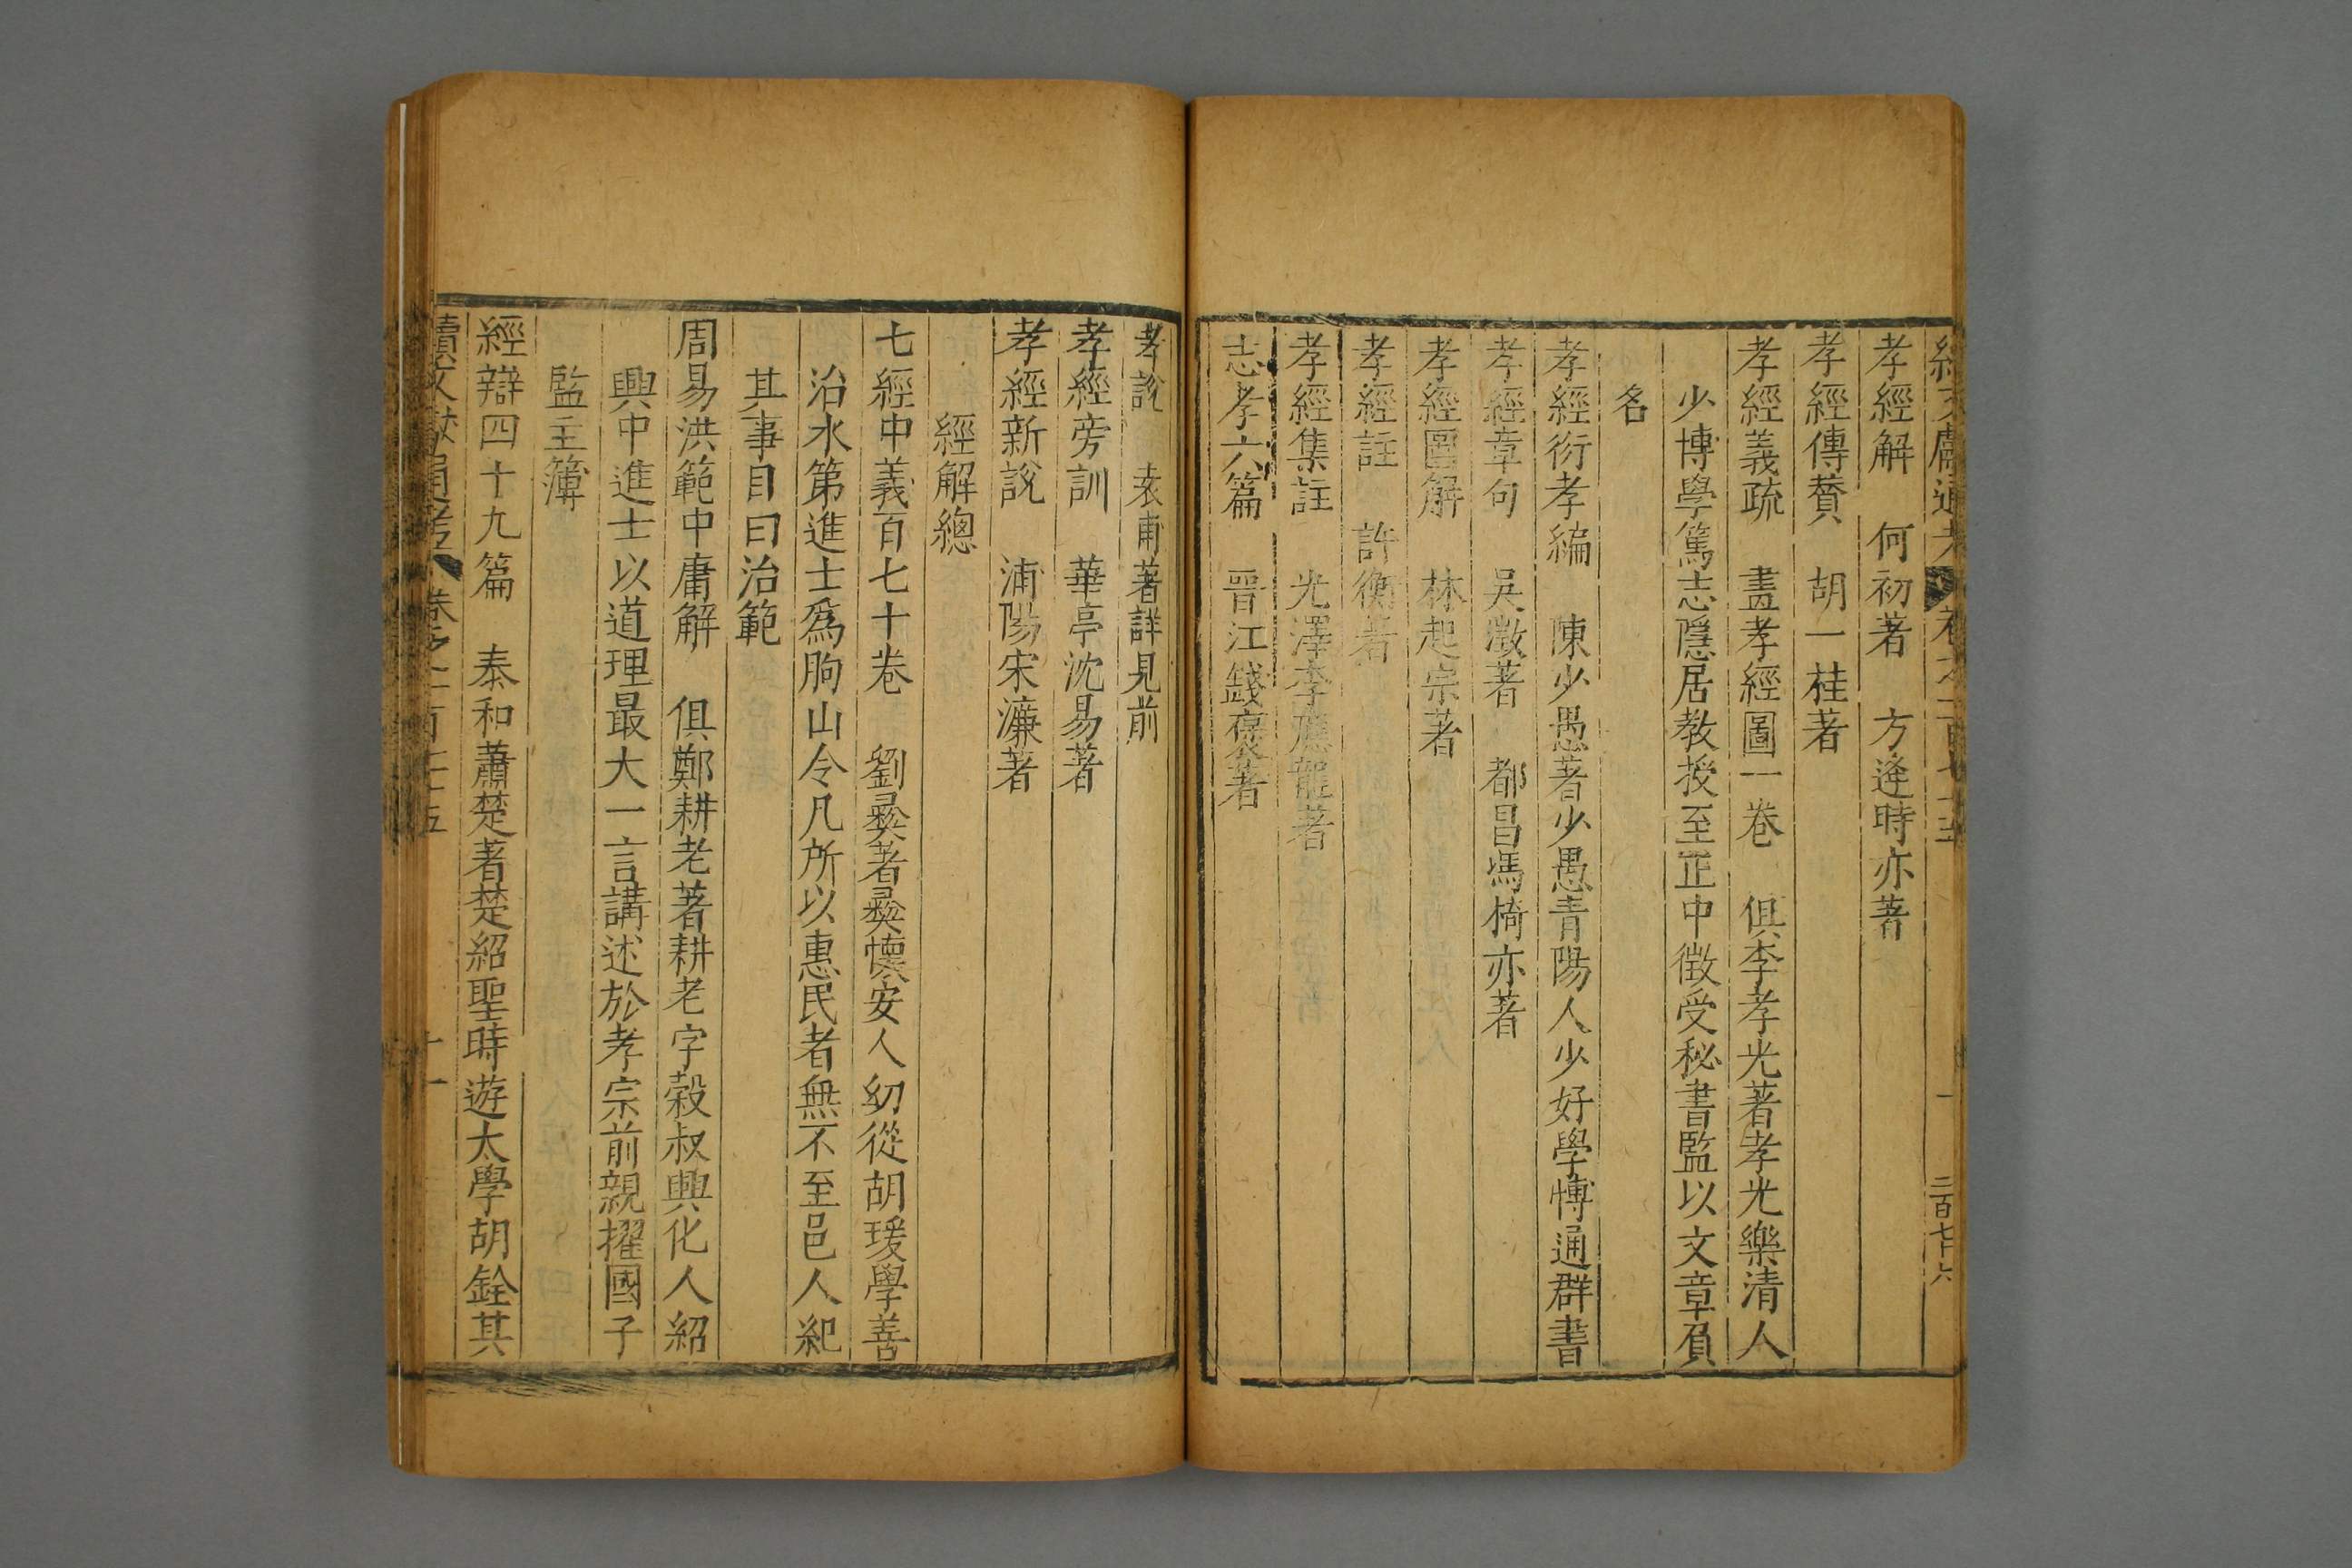 孝經解　何初著　方逢時亦著
孝經傳贊　胡一桂著
孝經義疏　畫孝經圖一卷　俱李孝光著孝光樂清人
少博學篤志隱居教授至正中徵受秘書監以文章負
名
孝經衍孝編　陳少愚著少愚青陽人少好學慱通群書
孝經章句　吳澂著　都昌馮椅亦著
孝經圖解　林起宗著
孝經註　許衡著
孝經集註　光澤李應龍著
志孝六篇　晉江錢褒著
孝說　袁甫著詳見前
孝經旁訓　華亭沈易著
孝經新說　浦陽宋濂著
經解總
七經中義百七十卷　劉彝著彝懷安人幼從胡瑗學善
治水第進士爲朐山令凡所以惠民者無不至邑人紀
其事目曰治範
周易洪範中庸解　俱鄭耕老著耕老字榖叔興化人紹
興中進士以道理最大一言講述於孝宗前親擢國子
監主簿
經辯四十九篇　泰和蕭楚著楚紹聖時遊太學胡銓其